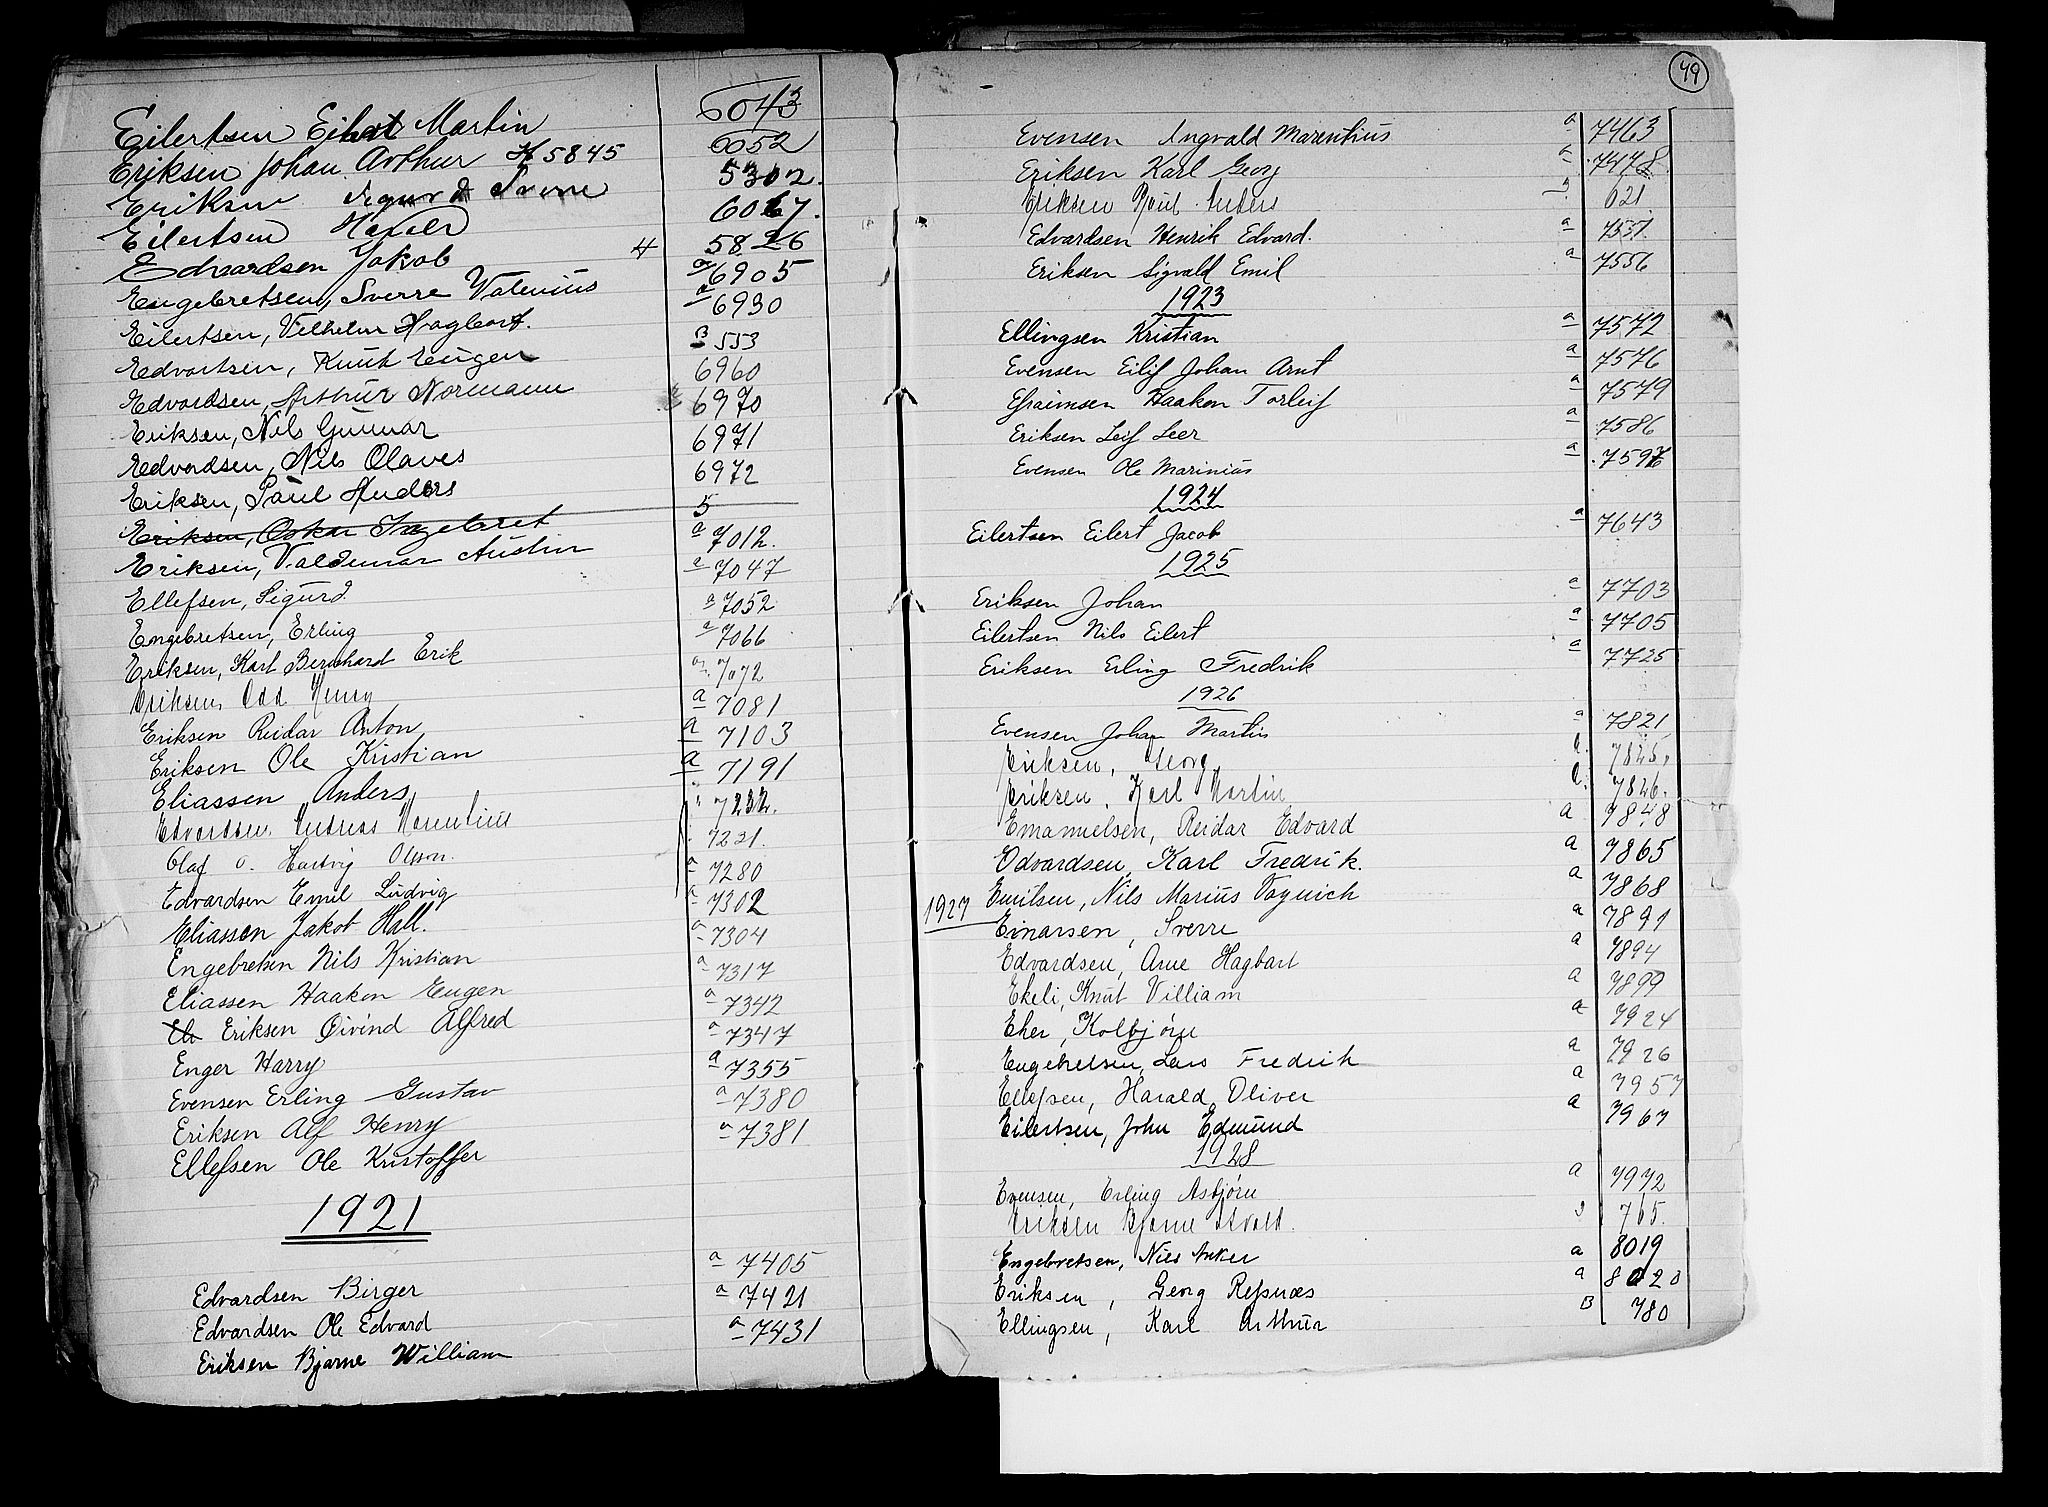 Eilertsen Eilert Martin 6043
Eriksen Johan Arthur H 5845 6052
Eriksen Sigurd Sverre 5302.
Eilertsen 6067.
Edvardsen Jakob H 5826
Engebretsen, Sverre Valenius a 6905
Eilertsen, Vilhelm Hagbart. a 6930
Edvartsen, Knut Eugen B 553
Edvardsen, Arthur Normann 6960
Eriksen, Nils Gunnar 6970
Eedvardsen, Nils Olaves 6971
Eriksen, Paul Anders 6972
Eriksen, Oskar Ingebret 5
Eriksen, Valdemar Austin a 7012.
Ellefsen, Sigurd a 7047
Engebretsen, Erling a 7052
Eriksen, Karl Bernhard Erik a 7066
Eriksen, Odd Henry a 7072
Eriksen Reidar Anton a 7081
Eriksen Ole Kristian a 7103
Eliassen Anders a 7191
Edvardsen, Andreas Marentius " 7232.
Olaf v. Hartvig Olsson. 7221.
Edvardsen Emil Ludvig a 7280
Eliassen Jakob Hall. a 7302
Engebretsen Nils Kristian a 7304
Eliassen Haakon Eugen a 7317
Eli Eriksen Øivind Alfred a 7342
Enger Harry a 7347
Evensen Erling Gustav a 7355
Eriksen Alf Henry a 7380
Ellefsen Ole Kristoffer a 7381
1921
Edvardsen Birger a 7405
Edvardsen Ole Edvard a 7421
Eriksen Bjarne William a 7431
49
Evensen Ingvald Marentius a 7463
Eriksen Karl Georg a 7478
Eriksen Poul Anders 621
Edvardsen Henrik Edvard. a 7531
Eriksen Sigvald Emil a 7556
1923
Ellingsen Kristian a 7572
Evensen Eilif Johan Arnt a 7576
Efraimsen Haakon Torleif a 7579
Eriksen Leif Leer a 7586
Evensen Ole Marinius a 7597
1924
Eilertsen Eilert Jacob a 7643
1925
Eriksen Johan a 7703
Eilertsen Nils Eilert a 7705
Eriksen Erling Fredrik a 7725
1926
Evensen Johan Martin a 7821
Eriksen, Georg a. 7825,
Eriksen, Karl Martin a. 7826.
Emanuelsen, Reidar Edvard a 7848
Edvardsen, Karl Fredrik. a 7865
Emilsen, Nils Marius Vagnich a 7868
1927 Einarsen, Sverre a 7891
Edvardsen, Arne Hagbart a 7894
Ekeli, Knut Villiam a 7899
Eker, Kolbjørn a 7924
Engebretsen, Lars Fredrik a 7926
Ellefsen, Harald Oliver a 7957
Eilertsen, John Edmund a 7967
1928
Evensen, Erling Asbjørn a 7972
Eriksen Bjarne Asvald. 765.
Engebretsen, Nils Anker a 8019
Eriksen, Georg Refsnæs a 8020
Ellingsen, Karl Arthur B 780